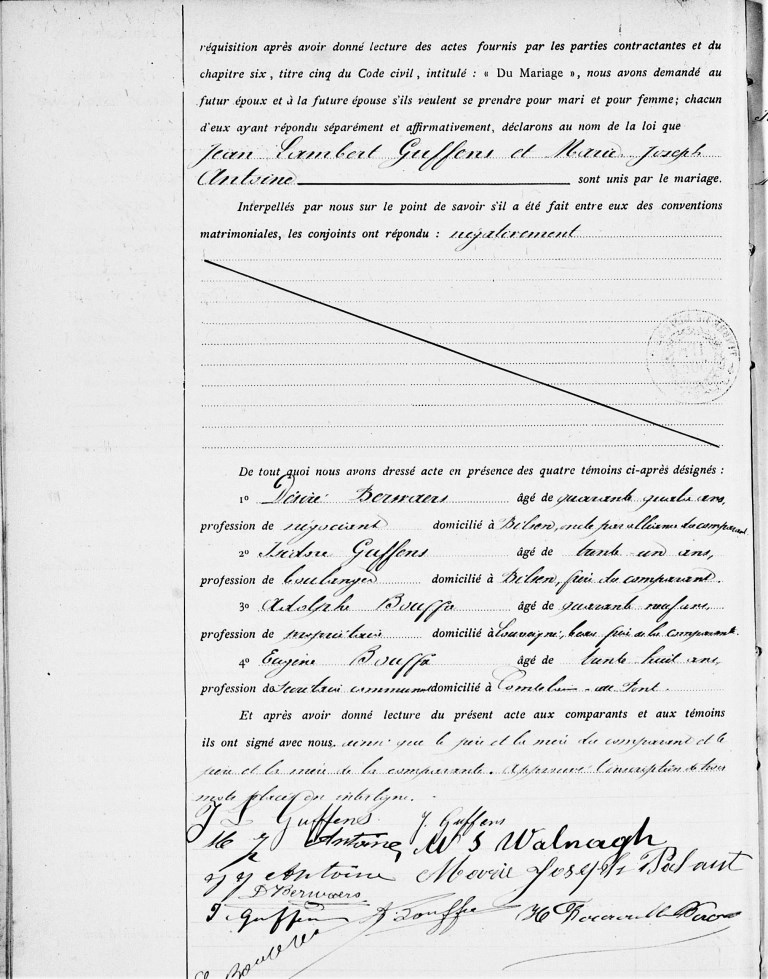 réquisition après avoir donné lecture des actes fournis par les parties contractantes et du
chapitre six, titre cinq du Code civil, intitulé : « Du Mariage », nous avons demandé au
futur époux et à la future épouse s'ils veulent se prendre pour mari et pour femme; chacun
d'eux ayant répondu séparément et affirmativement, déclarons au nom de la loi que
Jean Lambert Guffens et Marie Joseph
Antoine sont unis par le mariage.
Interpellés par nous sur le point de savoir s'il a été fait entre eux des conventions
matrimoniales, les conjoints ont répondu : négativement
De tout quoi nous avons dressé acte en présence des quatre témoins ci-après désignés :
1º Désiré Berwaers âgé de quarante quatre ans,
profession de négociant domicilié à Bilsen, oncle par alliance du comparant
2º Isidore Guffens âgé de trente un ans,
profession de boulanger domicilié à Bilsen, frère du comparant.
3º Adolphe Bouffa âgé de quarante neuf ans,
profession de propriétaire domicilié à Louveigné, beau frère de la comparante.
4º Eugène Bouffa âgé de trente huit ans,
profession de secrétaire communal domicilié à Comblain-au-Pont.
Et après avoir donné lecture du présent acte aux comparants et aux témoins
ils ont signé avec nous. ainsi que le père et la mère du comparant et le
père et la mère de la comparante. Approuvé l'inscription de trois
mots placés en interligne.
J L Guffens J. Guffens
M J Antoine M S Walnagh
J J Antoine Marie Joseph
D Berwaers
I Guffens A Bouffa